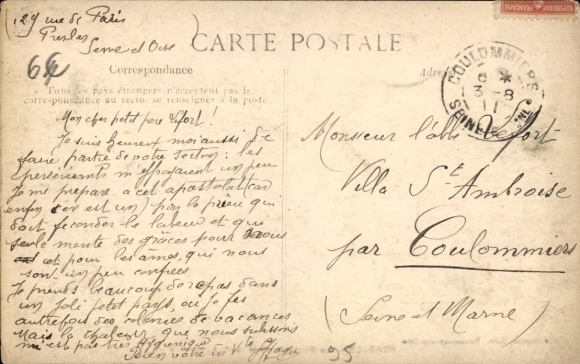 (29 rue de Paris
Presles
Seine et Oise
64
CARTE POSTALE
Correspondance
Tous les pays étrangers n'acceptent pas la
correspondance au recto, se renseigner à la poste
Mon cher petit père Lefort!
Je suis heureux moi aussi de
faire partie de votre section: les
persévérants m'effrayaient un peu
Je me prépare à cet apostolat (car
enfin c'en est un) par la prière qui
doit féconder le labeur et qui
seule mérite des grâces pour nous
et pour les âmes qui nous
sont un peu confiées
Je prends beaucoup de repas dans
un joli petit pays, où je fis
autrefois des colonies de vacances
Mais la chaleur que nous subissons
n'est pas très hygiénique
Bien vôtre in
95
Adresse
RÉPUBLIQUE FRANÇAISE
COULOMMIERS
6 *
3 -8
11
SEINE ET MNE
Monsieur l'abbé Lefort
Villa St Ambroise
par Coulommiers
(Seine et Marne)